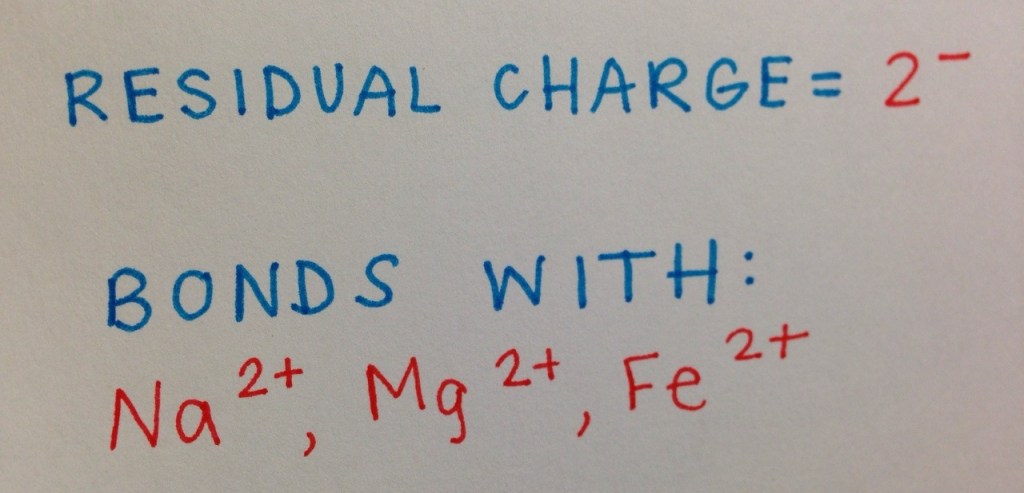 RESIDUAL CHARGE = 2⁻
BONDS WITH:
Na²⁺, Mg²⁺, Fe²⁺